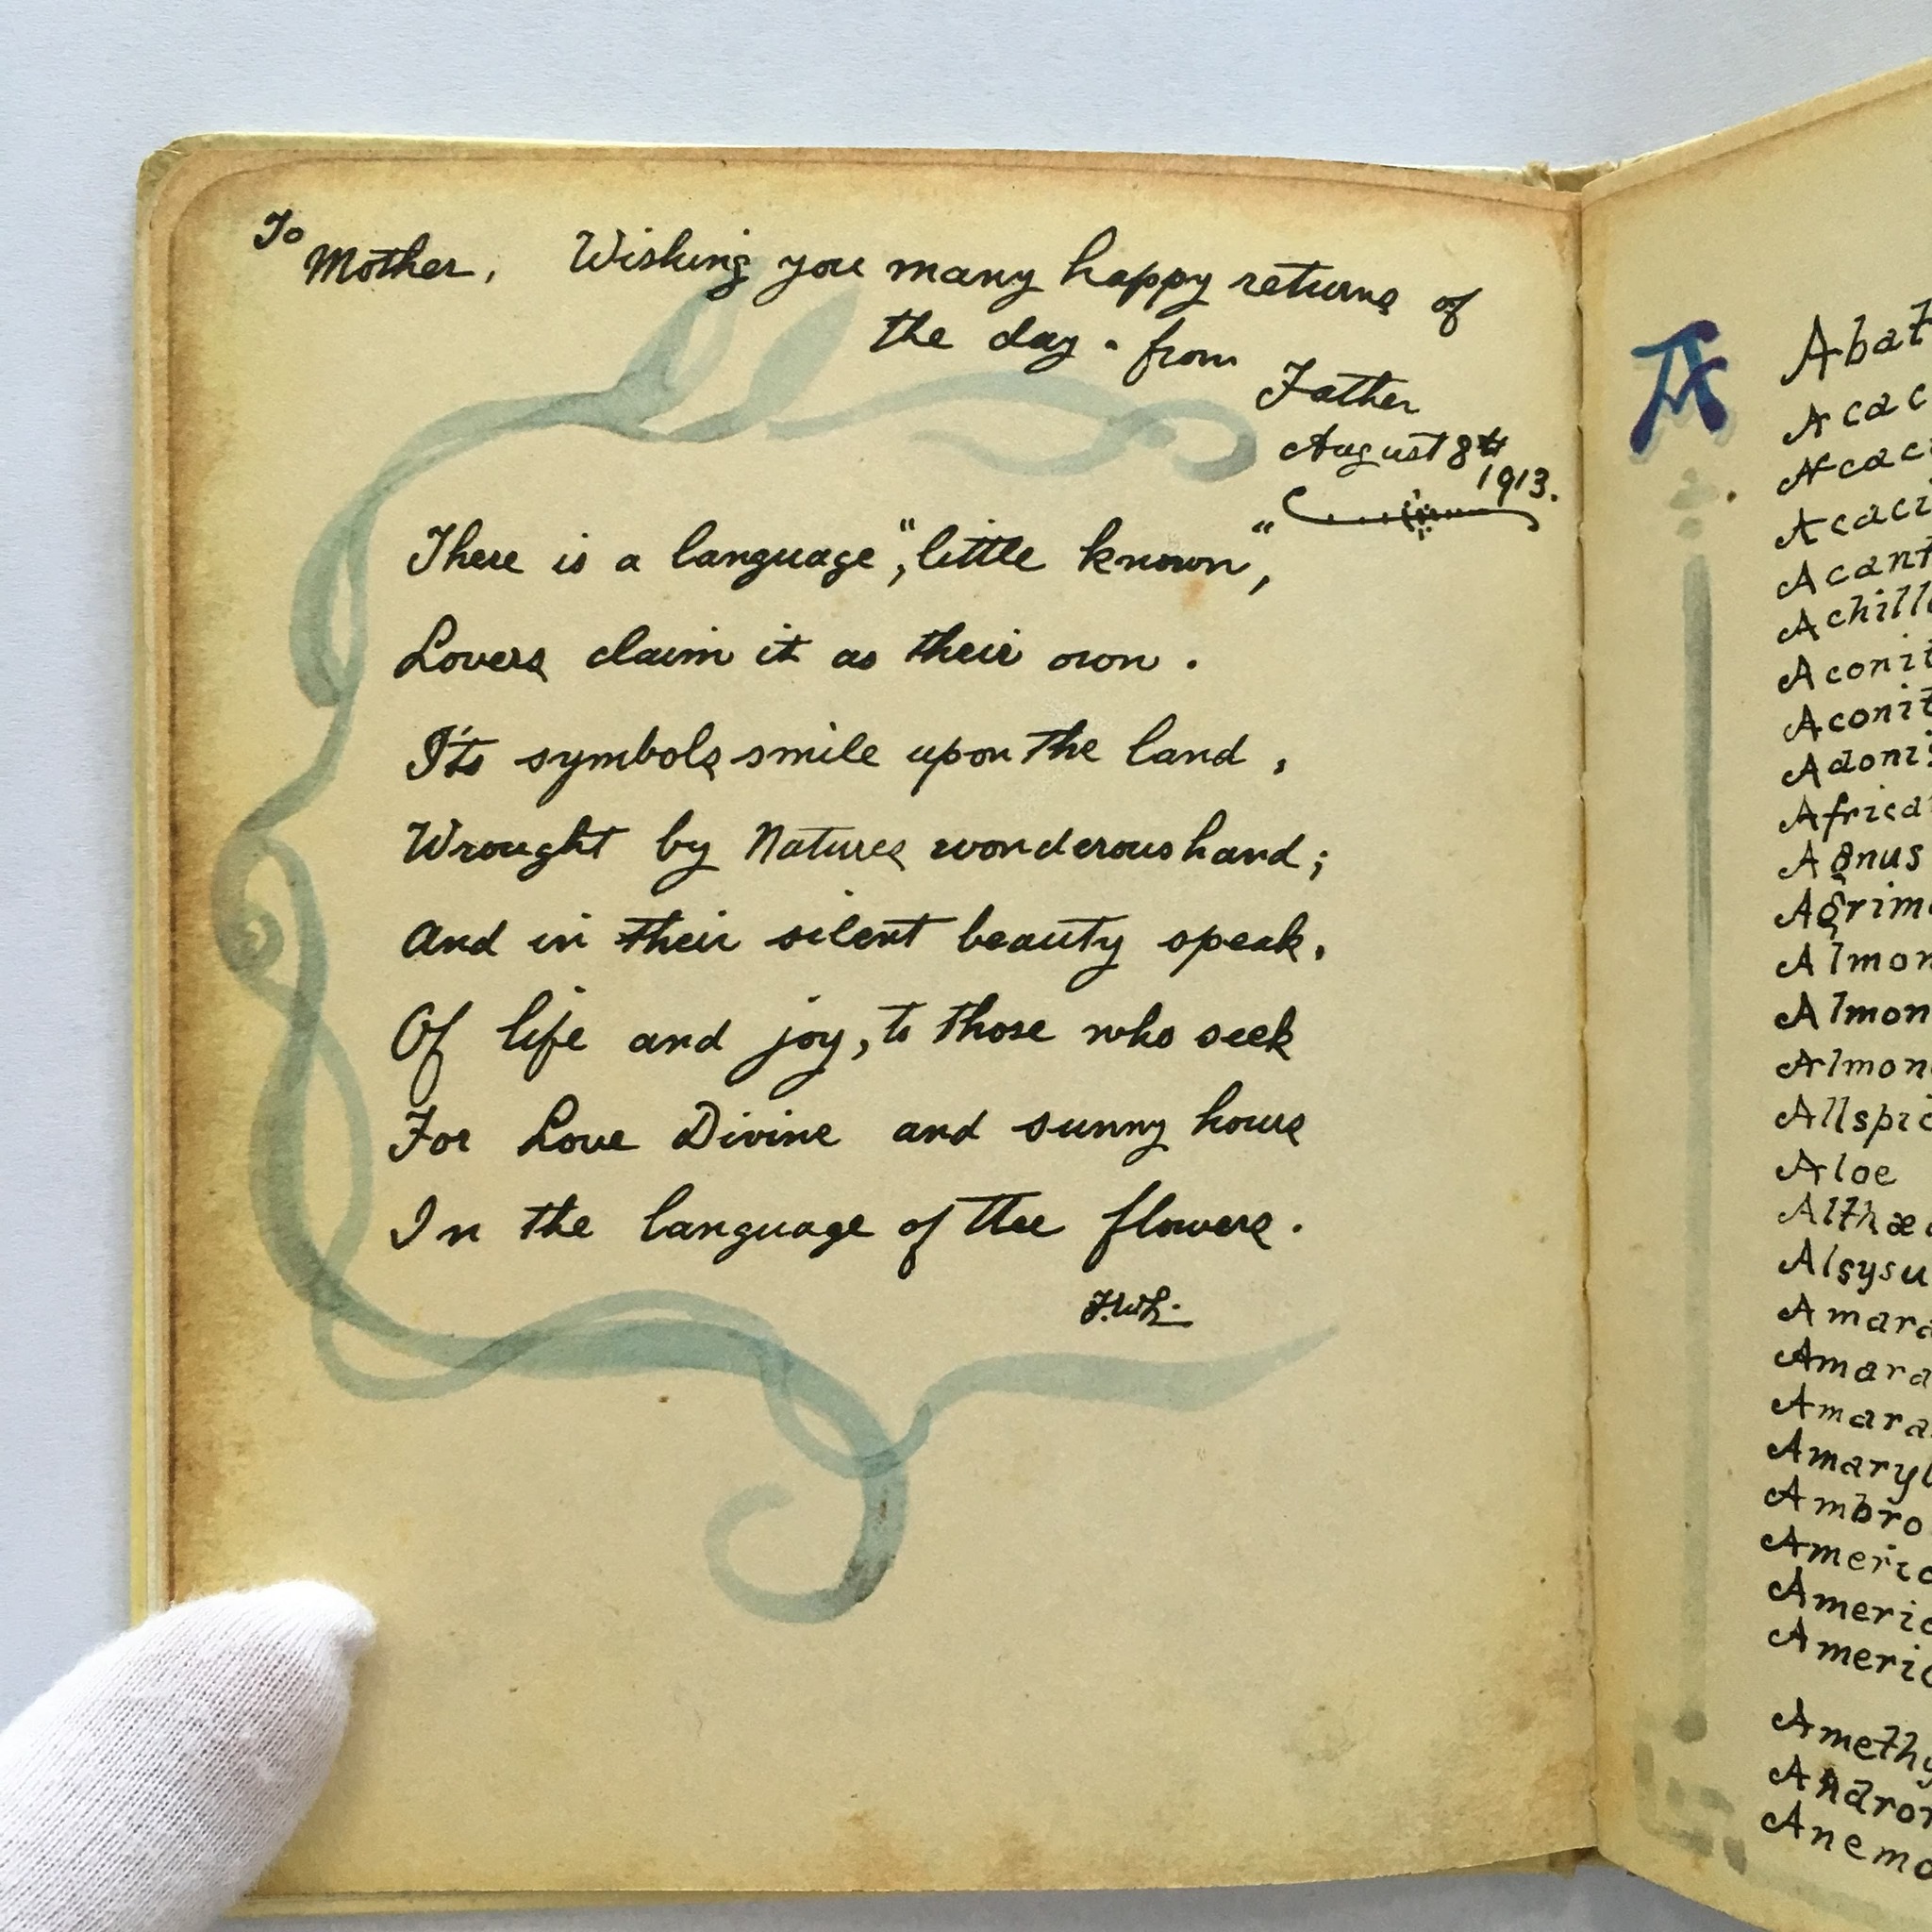 To
Mother, Wishing you many happy returns of
the day. from
Father
August 8th
1913.
There is a language, "little known",
Lovers claim it as their own.
It's symbols smile upon the land,
Wrought by Natures wonderous hand;
And in their silent beauty speak,
Of life and joy, to those who seek
For Love Divine and sunny hours
In the language of the flowers.
A
Abat
Acac
Acac
Acaci
Acant
Achill
Aconit
Aconit
Adonis
Africa
Agnus
Agrim
Almon
Almon
Almon
Allspic
Aloe
Althæ
Alsysu
Amara
Amara
Amara
Amaryl
Ambro
Americ
Americ
Americ
Amethy
Andron
Anemo